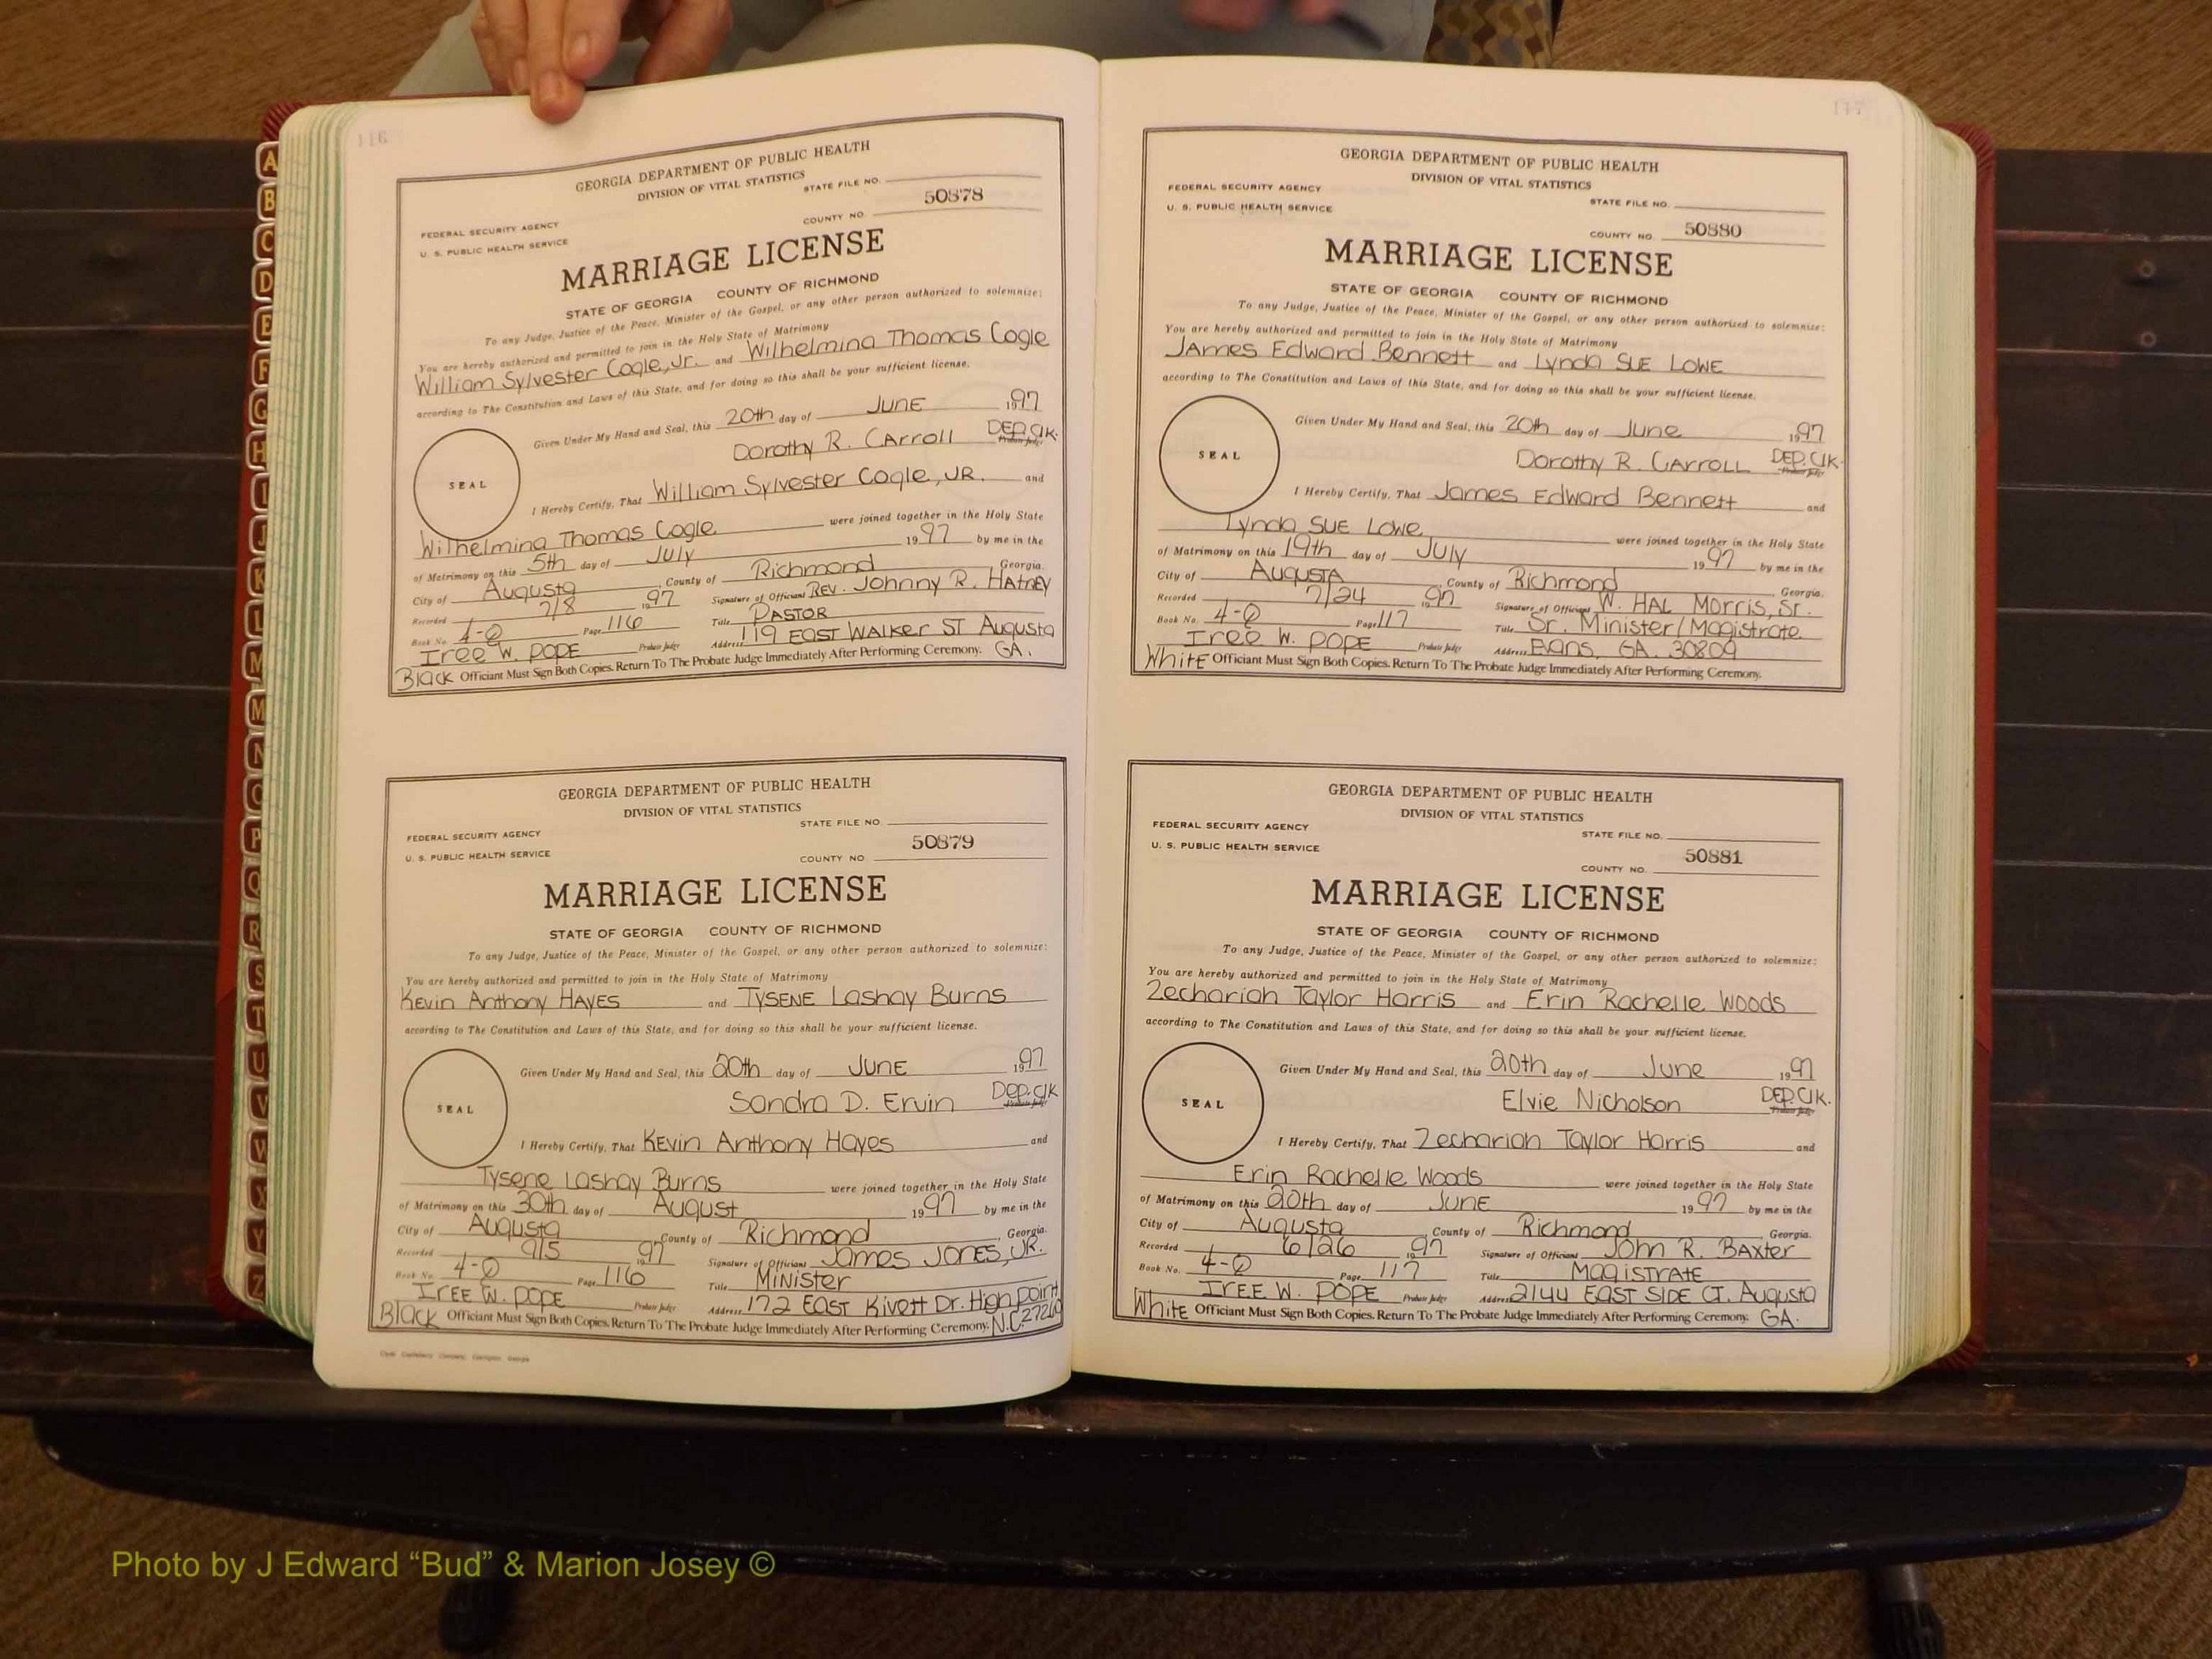 116
GEORGIA DEPARTMENT OF PUBLIC HEALTH
DIVISION OF VITAL STATISTICS
STATE FILE NO.
FEDERAL SECURITY AGENCY
COUNTY NO. 50878
U. S. PUBLIC HEALTH SERVICE
MARRIAGE LICENSE
STATE OF GEORGIA COUNTY OF RICHMOND
To any Judge, Justice of the Peace, Minister of the Gospel, or any other person authorized to solemnize:
You are hereby authorized and permitted to join in the Holy State of Matrimony
William Sylvester Cogle, Jr. and Wilhelmina Thomas Cogle
according to The Constitution and Laws of this State, and for doing so this shall be your sufficient license.
Given Under My Hand and Seal, this 20th day of JUNE 1997
Dorothy R. CArroll DEP. Clk. Probate Judge
SEAL
I Hereby Certify, That William Sylvester Cogle, JR. and
Wilhelmina Thomas Cogle were joined together in the Holy State
of Matrimony on this 5th day of July 1997 by me in the
City of Augusta, County of Richmond, Georgia.
Recorded 7/8 1997 Signature of Officiant REV. Johnny R. HAtNEY
Book No. 4-Q Page 116 Title PASTOR
Iree W. POPE Probate Judge Address 119 EAST WALKER ST Augusta
Black Officiant Must Sign Both Copies. Return To The Probate Judge Immediately After Performing Ceremony. GA.
GEORGIA DEPARTMENT OF PUBLIC HEALTH
DIVISION OF VITAL STATISTICS
STATE FILE NO.
FEDERAL SECURITY AGENCY
U. S. PUBLIC HEALTH SERVICE
COUNTY NO 50879
MARRIAGE LICENSE
STATE OF GEORGIA COUNTY OF RICHMOND
To any Judge, Justice of the Peace, Minister of the Gospel, or any other person authorized to solemnize:
You are hereby authorized and permitted to join in the Holy State of Matrimony
Kevin Anthony HAYES and TYSENE Lashay Burns
according to The Constitution and Laws of this State, and for doing so this shall be your sufficient license.
Given Under My Hand and Seal, this 20th day of JUNE 1997
Sandra D. Ervin DEP. Clk Probate Judge
SEAL
I Hereby Certify, That KEvin Anthony Hayes and
Tysene Lashay Burns were joined together in the Holy State
of Matrimony on this 30th day of August 1997 by me in the
City of Augusta, County of Richmond, Georgia.
Recorded 9/5 1997 Signature of Officiant James JONES, JR.
Book No. 4-Q Page 116 Title Minister
IREE W. POPE Probate Judge Address 172 EAST Kivett Dr. High point
Black Officiant Must Sign Both Copies. Return To The Probate Judge Immediately After Performing Ceremony. N.C. 27260
117
GEORGIA DEPARTMENT OF PUBLIC HEALTH
DIVISION OF VITAL STATISTICS
FEDERAL SECURITY AGENCY
STATE FILE NO.
U. S. PUBLIC HEALTH SERVICE
COUNTY NO. 50880
MARRIAGE LICENSE
STATE OF GEORGIA COUNTY OF RICHMOND
To any Judge, Justice of the Peace, Minister of the Gospel, or any other person authorized to solemnize:
You are hereby authorized and permitted to join in the Holy State of Matrimony
JAmes Edward Bennett and Lynda SUE LOWE
according to The Constitution and Laws of this State, and for doing so this shall be your sufficient license.
Given Under My Hand and Seal, this 20th day of June 1997
Dorothy R. CArroLL DEP. Clk. Probate Judge
SEAL
I Hereby Certify, That James Edward Bennett and
Lynda SUE Lowe were joined together in the Holy State
of Matrimony on this 19th day of July 1997 by me in the
City of AugustA, County of Richmond, Georgia.
Recorded 7/24 1997 Signature of Officiant W. HAL Morris, Sr.
Book No. 4-Q Page 117 Title Sr. Minister/Magistrate
Iree W. POPE Probate Judge Address Evans, GA. 30809
White Officiant Must Sign Both Copies. Return To The Probate Judge Immediately After Performing Ceremony.
GEORGIA DEPARTMENT OF PUBLIC HEALTH
DIVISION OF VITAL STATISTICS
FEDERAL SECURITY AGENCY
STATE FILE NO.
U. S. PUBLIC HEALTH SERVICE
COUNTY NO. 50881
MARRIAGE LICENSE
STATE OF GEORGIA COUNTY OF RICHMOND
To any Judge, Justice of the Peace, Minister of the Gospel, or any other person authorized to solemnize:
You are hereby authorized and permitted to join in the Holy State of Matrimony
Zechariah Taylor Harris and Erin Rachelle Woods
according to The Constitution and Laws of this State, and for doing so this shall be your sufficient license.
Given Under My Hand and Seal, this 20th day of June 1997
Elvie Nicholson DEP. Clk. Probate Judge
SEAL
I Hereby Certify, That Zechariah Taylor Harris and
Erin Rachelle Woods were joined together in the Holy State
of Matrimony on this 20th day of JUNE 1997 by me in the
City of Augusta, County of Richmond, Georgia.
Recorded 6/26 1997 Signature of Officiant John R. BAxter
Book No. 4-Q Page 117 Title MAgiSTRATE
IREE W. POPE Probate Judge Address 2144 EAST SIDE CT. Augusta
White Officiant Must Sign Both Copies. Return To The Probate Judge Immediately After Performing Ceremony. GA.
A
B
C
D
E
F
G
H
I
J
K
L
M
M
N
O
P
Q
R
S
T
U
V
W
X
Y
Z
Photo by J Edward “Bud” & Marion Josey ©